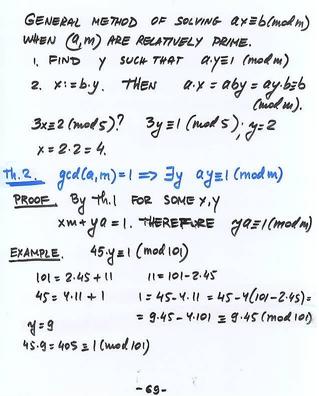 GENERAL METHOD OF SOLVING ax≡b(mod m)
WHEN (a,m) ARE RELATIVELY PRIME.
1. FIND y SUCH THAT a·y≡1 (mod m)
2. x:=b·y. THEN a·x = aby = ay·b≡b
(mod m).
3x≡2(mod 5)? 3y≡1(mod 5); y=2
x=2·2=4.
Th.2. gcd(a,m)=1 => ∃y ay≡1(mod m)
PROOF. By Th.1 FOR SOME x,y
xm+ya=1. THEREFORE ya≡1(mod m)
EXAMPLE. 45·y≡1(mod 101)
101=2·45+11 11=101-2·45
45=4·11+1 1=45-4·11=45-4(101-2·45)=
=9·45-4·101≡9·45(mod 101)
y=9
45·9=405≡1(mod 101)
-69-